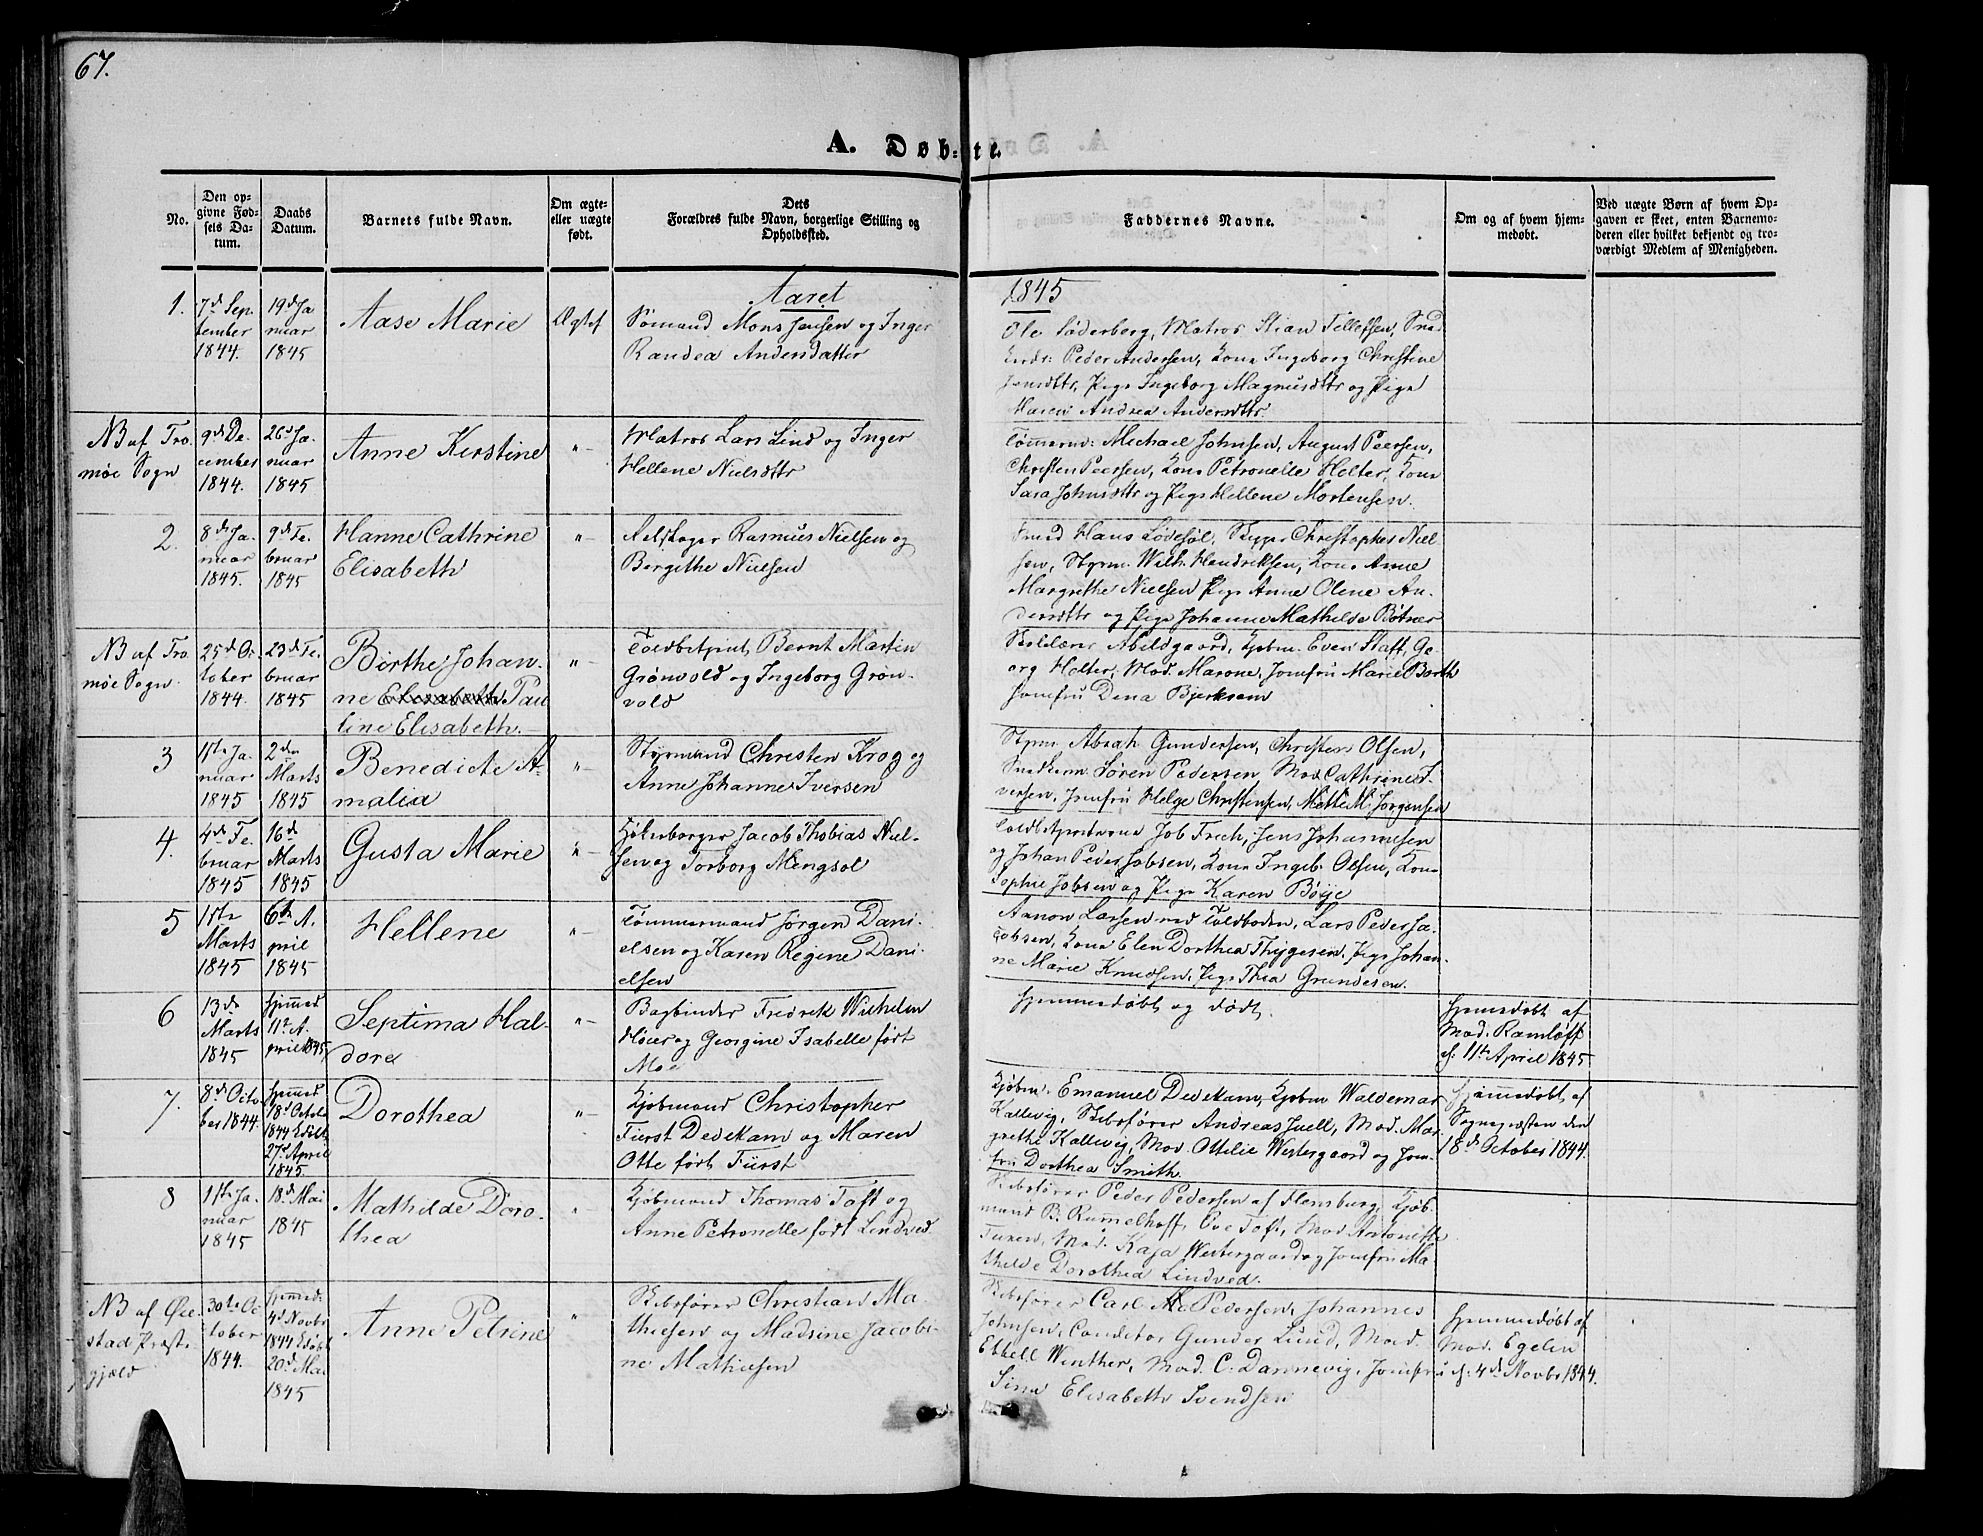 67.
A. Døb-te.
No.
Den op-
givne Fød-
sels Da-
tum.
Daabs
Datum.
Barnets fulde Navn.
Om ægte-
eller uægte
født.
Dets
Forældres fulde Navn, borgerlige Stilling og
Opholdssted.
Faddernes Navne.
Om og af hvem hjem-
medøbt.
Ved uægte Børn af hvem Op-
gaven er skeet, enten Barnemo-
deren eller hvilket bekjendt og tro-
værdigt Medlem af Menigheden.
Aaret 1845
1.
7d Sep-
tember
1844.
19d Ja
nuar
1845
Aase Marie
Ægtef
Sømand Mons Jensen og Inger
Randea Andersdatter
Ole Søderberg, Matros Stian Tellefsen, Sned
Peder Andersen, Kone Ingeborg Christine
Jensdttr, Pige Ingeborg Magnusdttr og Pige
Maren Andrea Andersdttr.
NB af Tro
møe Sogn
9d De-
cember
1844.
26d Ja-
nuar
1845
Anne Kirstine
"-
Matros Lars Lind og Inger
Hellene Nielsdttr
Tømmerm: Michael Johnsen, August Peersen,
Christen Peersen, Kone Petronelle Holter, Kone
Sara Johnsdttr og Pige Hellene Mortensen.
2.
8d Ja-
nuar
1845.
9d Fe-
bruar
1845
Hanne Cathrine
Elisabeth
"-
Rasmus Nielsen og
Bergithe Nielsen
Smed Hans Løvesøl, Skipp. Christopher Niel
sen, Styrm. Wilh. Hendriksen, Kone Anne
Margrethe Nielsen Pige Anne Olene An-
dersdttr og Pige Johanne Mathilde Botner
NB af Tro
møe Sogn.
25d Oc-
tober
1844.
23d Fe-
bruar
1845
Birthe Johan-
ne Elisabeth Pau
line Elisabeth.
"-
Toldbetjent Bernt Martin
Grønvold og Ingeborg Grøn-
vold
Skolelærer Abildgaard, Kjøbm. Even Staff, Ge-
org Holter, Mad. Marone, Jomfru Marie Barth
Jomfru Dena Bjerksem
3
15te Ja-
nuar
1845
2den
Marts
1845
Benedicte A-
malia
"-
Styrmand Christen Krog og
Anne Johanne Iversen
Styrm. Abrah Gundersen, Christen Olsen,
Snedkerm. Søren Pedersen, Mad Cathrine I-
versen, Jomfru Helge Christensen, Mette M. Jørgensen
4.
4d Fe-
bruar
1845
16d
Marts
1845
Gusta Marie
"-
Jacob Thobias Niel-
sen og Torborg Mengsol
Job Frich, Jens Johannesen
og Johan Peder Jobsen, Kone Ingeb. Olsen, Kone
Sophie Jobsen og Pige Karen Bøije
5
15te
Marts
1845
6te A-
pril
1845
Hellene
"-
Tømmermand Jørgen Dani-
elsen og Karen Regine Dani-
elsen
Aanon Larsen ved Toldboden, Lars Peder Ja-
cobsen, Kone Elen Dorthea Thygesen, Pige Johan-
ne Marie Knudsen, Pige Thea Grundesen.
6
13de
Marts
1845
hjemmed
11te A-
pril 1845
Septima Hal-
dora
"-
Bogbinder Fredrik Wilhelm
Høier og Georgine Isabelle født
Moe
Hjemmedøbt og død.
Hjemmedøbt af
Mad. Ramløff
d: 11te April 1845
7.
8d Octo-
ber 1844.
hjemmed
18d Octob
1844
27d April
1845
Dorothea
"-
Kjøbmand Christopher
Fürst Dedekam og Maren
Otte født Fürst
Kjøbm: Emanuel Dedekam, Kjøbm Waldemar
Kallevig, Skibsfører Andreas Juell, Mad. Mar-
grethe Kallevig, Mad. Ottilie Westergaard og Jom-
fru Dorthea Smith
Hjemmedøbt af
Sognepræsten den
18d October 1844.
8
1ste Ja-
nuar
1845
18d Mai
1845
Mathilde Doro-
thea
"-
Kjøbmand Thomas Toft og
Anne Petronelle født Lindved
Skibsfører Peder Pedersen af Flensburg, Kjøb-
mand B. Rummelhoff, Ove Toft, Mad Antonette
Tuxen, Mad. Kaja Westergaard og Jomfru Ma-
thilde Dorothea Lindved.
NB af Øie-
stad Præste-
gjæld
30te Oc-
tober
1844.
hjemmed:
4d Novbr
1844
20d Mai
1845
Anne Petrine
"
Skibsfører Christian Ma-
thiesen og Madsine Jacobi-
ne Mathiesen
Skibsfører Carl M Pedersen, Johannes
Johnsen, Conditor Gunder Lund, Mad.
Ebbell Winther, Mad. C. Dannevig, Jomfru
Sine Elisabeth Svendsen
Hjemmedøbt af
Mad. Egelin
d: 4d Novbr 1844.